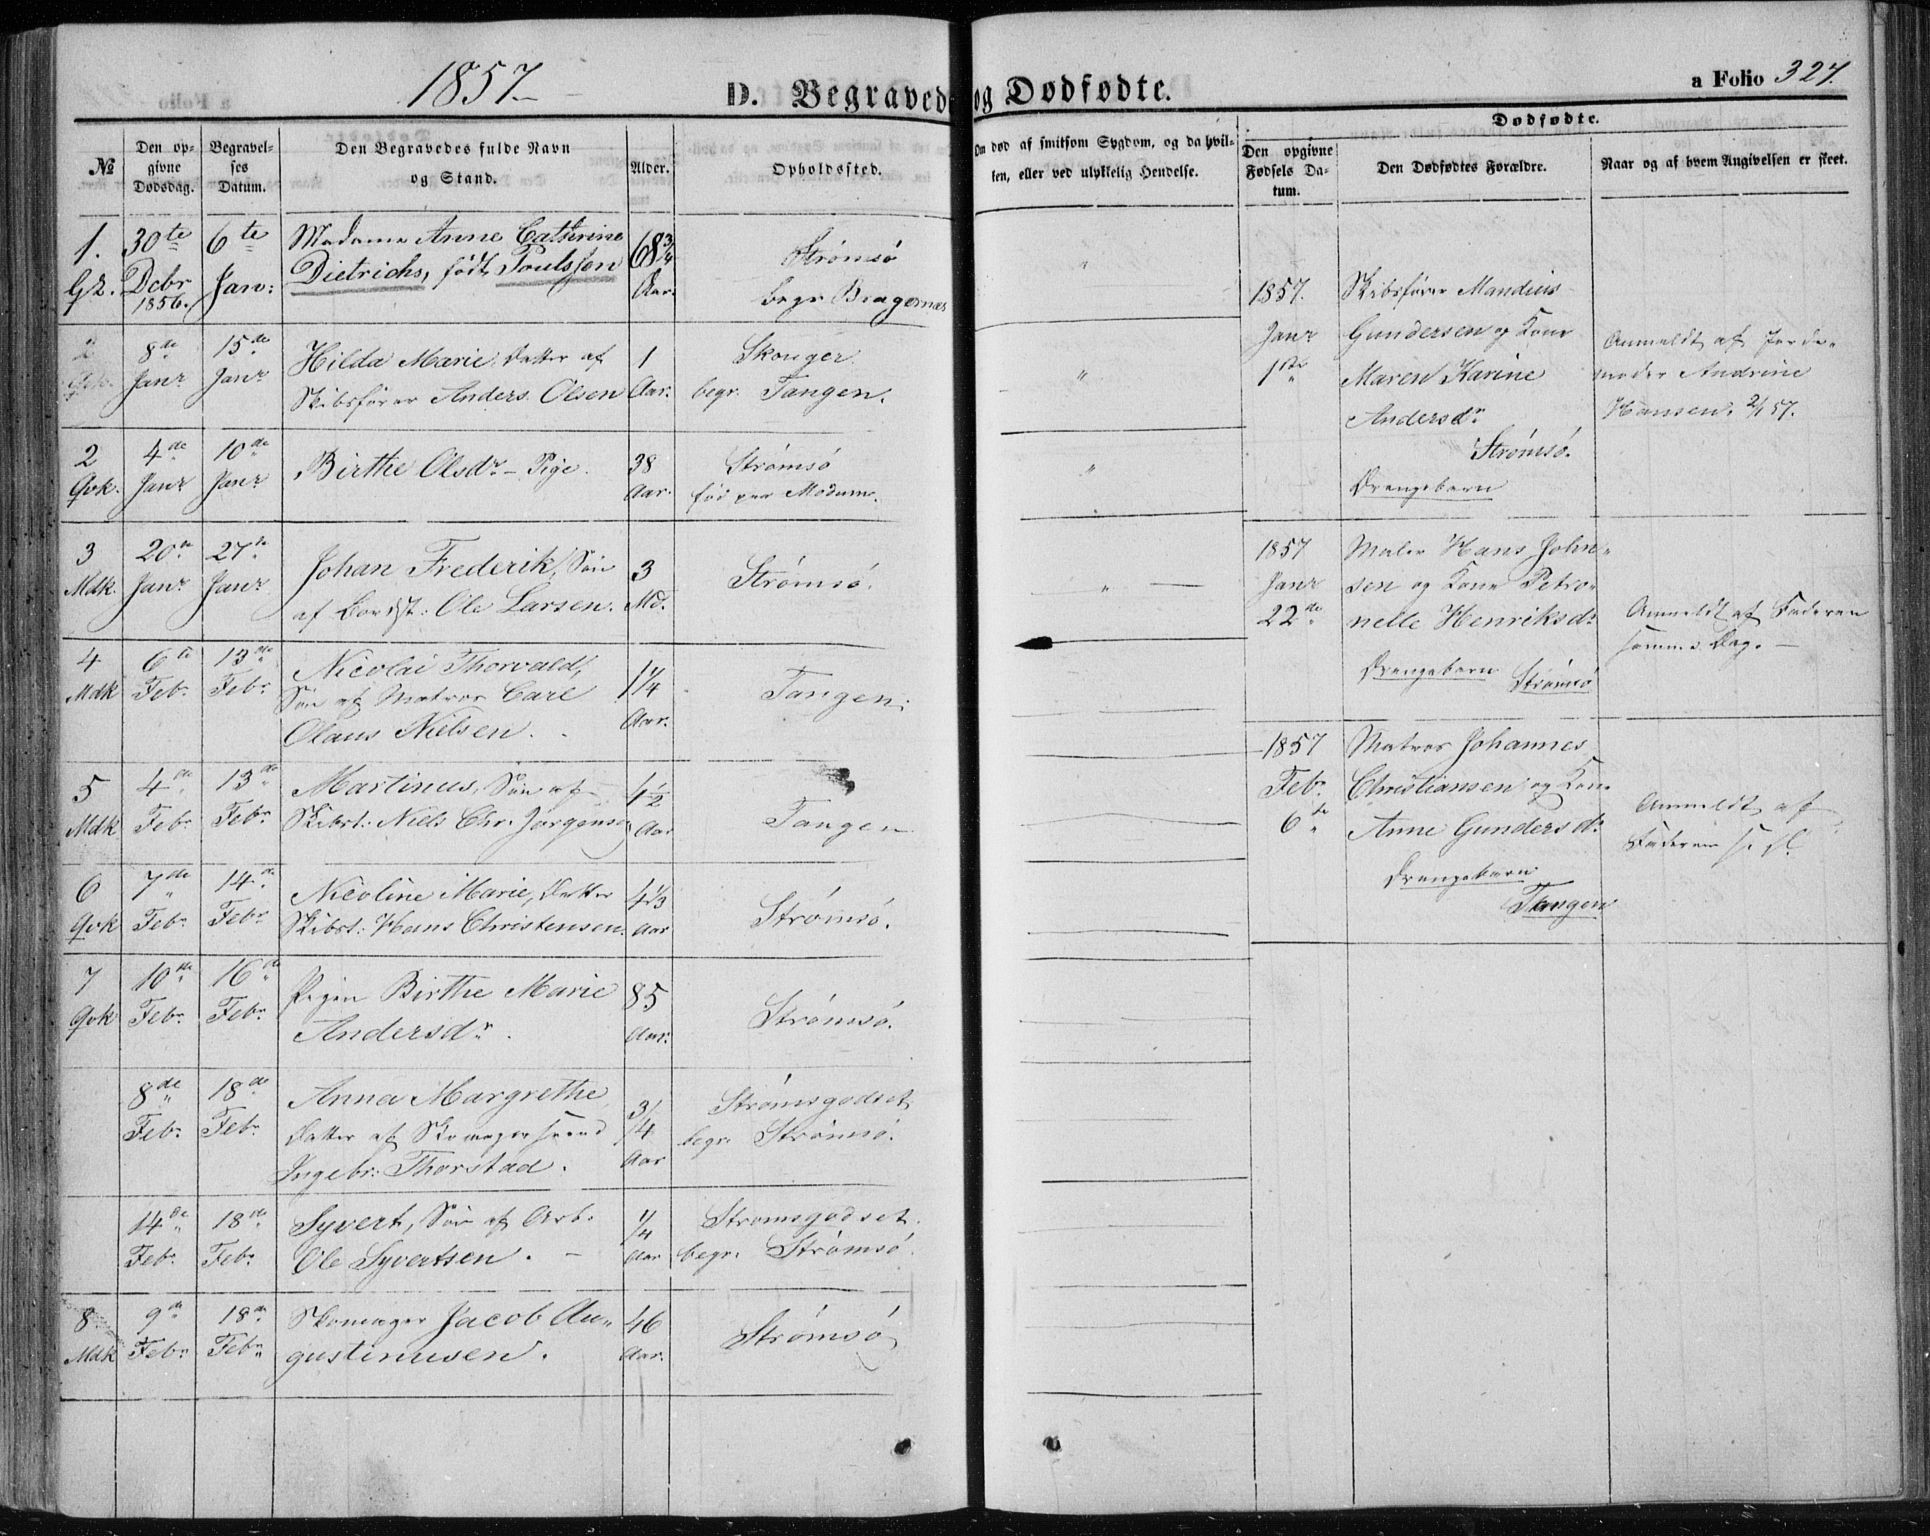 1857.
D. Begravede og Dødfødte.
a Folio 327.
№
Den opgivne Dødsdag.
Begravelses Datum.
Den Begravedes fulde Navn og Stand.
Alder.
Opholdssted.
Om død af smitsom Sygdom, og da hvilken, eller ved ulykkelig Hendelse.
Dødfødte.
Den opgivne Fødsels Datum.
Den Dødfødtes Forældre.
Naar og af hvem Angivelsen er skeet.
1. 30te 6te Madame Anne Cathrine 68 3/4 Strømsø
Gk. Dcbr 1856. Jan: Dietrichs, født Poulssen Aar. begr. Bragernæs
2 8de 15de Hilda Marie, Datter af 1 Skouger
Janr Janr Skibsfører Anders Olsen Aar. begr. Tangen.
2 4de 10de Birthe Olsdr - Pige. 38 Strømsø
Qvk. Janr Janr Aar. fød paa Modum.
3 20de 27de Johan Frederik, Søn 3 Strømsø.
Mdk. Janr Janr af Ole Larsen. Md.
4 6te 13de Nicolai Thorvald, 1 1/4 Tangen.
Mdk Febr Febr Søn af Matros Carl
Olaus Nielsen. Aar.
5 4de 13de Martinus, Søn af 4 1/2 Tangen
Mdk Febr Febr Skibst: Niels Chr. Jørgensen Aar
6 7de 14de Nicoline Marie, Datter 4 1/3 Strømsø.
Qvk Febr Febr Skibst: Hans Christensen. Aar
7 10de 16de Pigen Birthe Marie 85 Strømsø.
Qvk Febr Febr Andersdr. Aar.
8de 18de Anna Margrethe, 3/4 Strømsgodset
Febr Febr Datter af Skomagersvend begr. Strømsø.
Ingebr: Thorstad. Aar
14de 18de Syvert, Søn af Arb. 1/4 Strømsgodset.
Febr Febr Ole Syvertsen. - Aar begr. Strømsø.
8 9de 18de Skomager Jacob Au- 46 Strømsø
Mdk Febr Febr gustinusen. Aar.
1857. Skibsfører Mandius
Janr Gundersen og Kone Anmeldt af Jorde-
1ste Maren Karine moder Andrine
Andersdr Hansen. 2/1 57.
Strømsø.
Drengebarn
1857 Maler Hans John-
Janr sen og Kone Petro-
22de nelle Henriksdr Anmeldt af Faderen
Drengebarn Strømsø samme Dag. -
1857 Matros Johannes
Febr Christiansen og Kone Anmeldt af
6te Anne Gundersdr Faderen
Drengebarn
Tangen